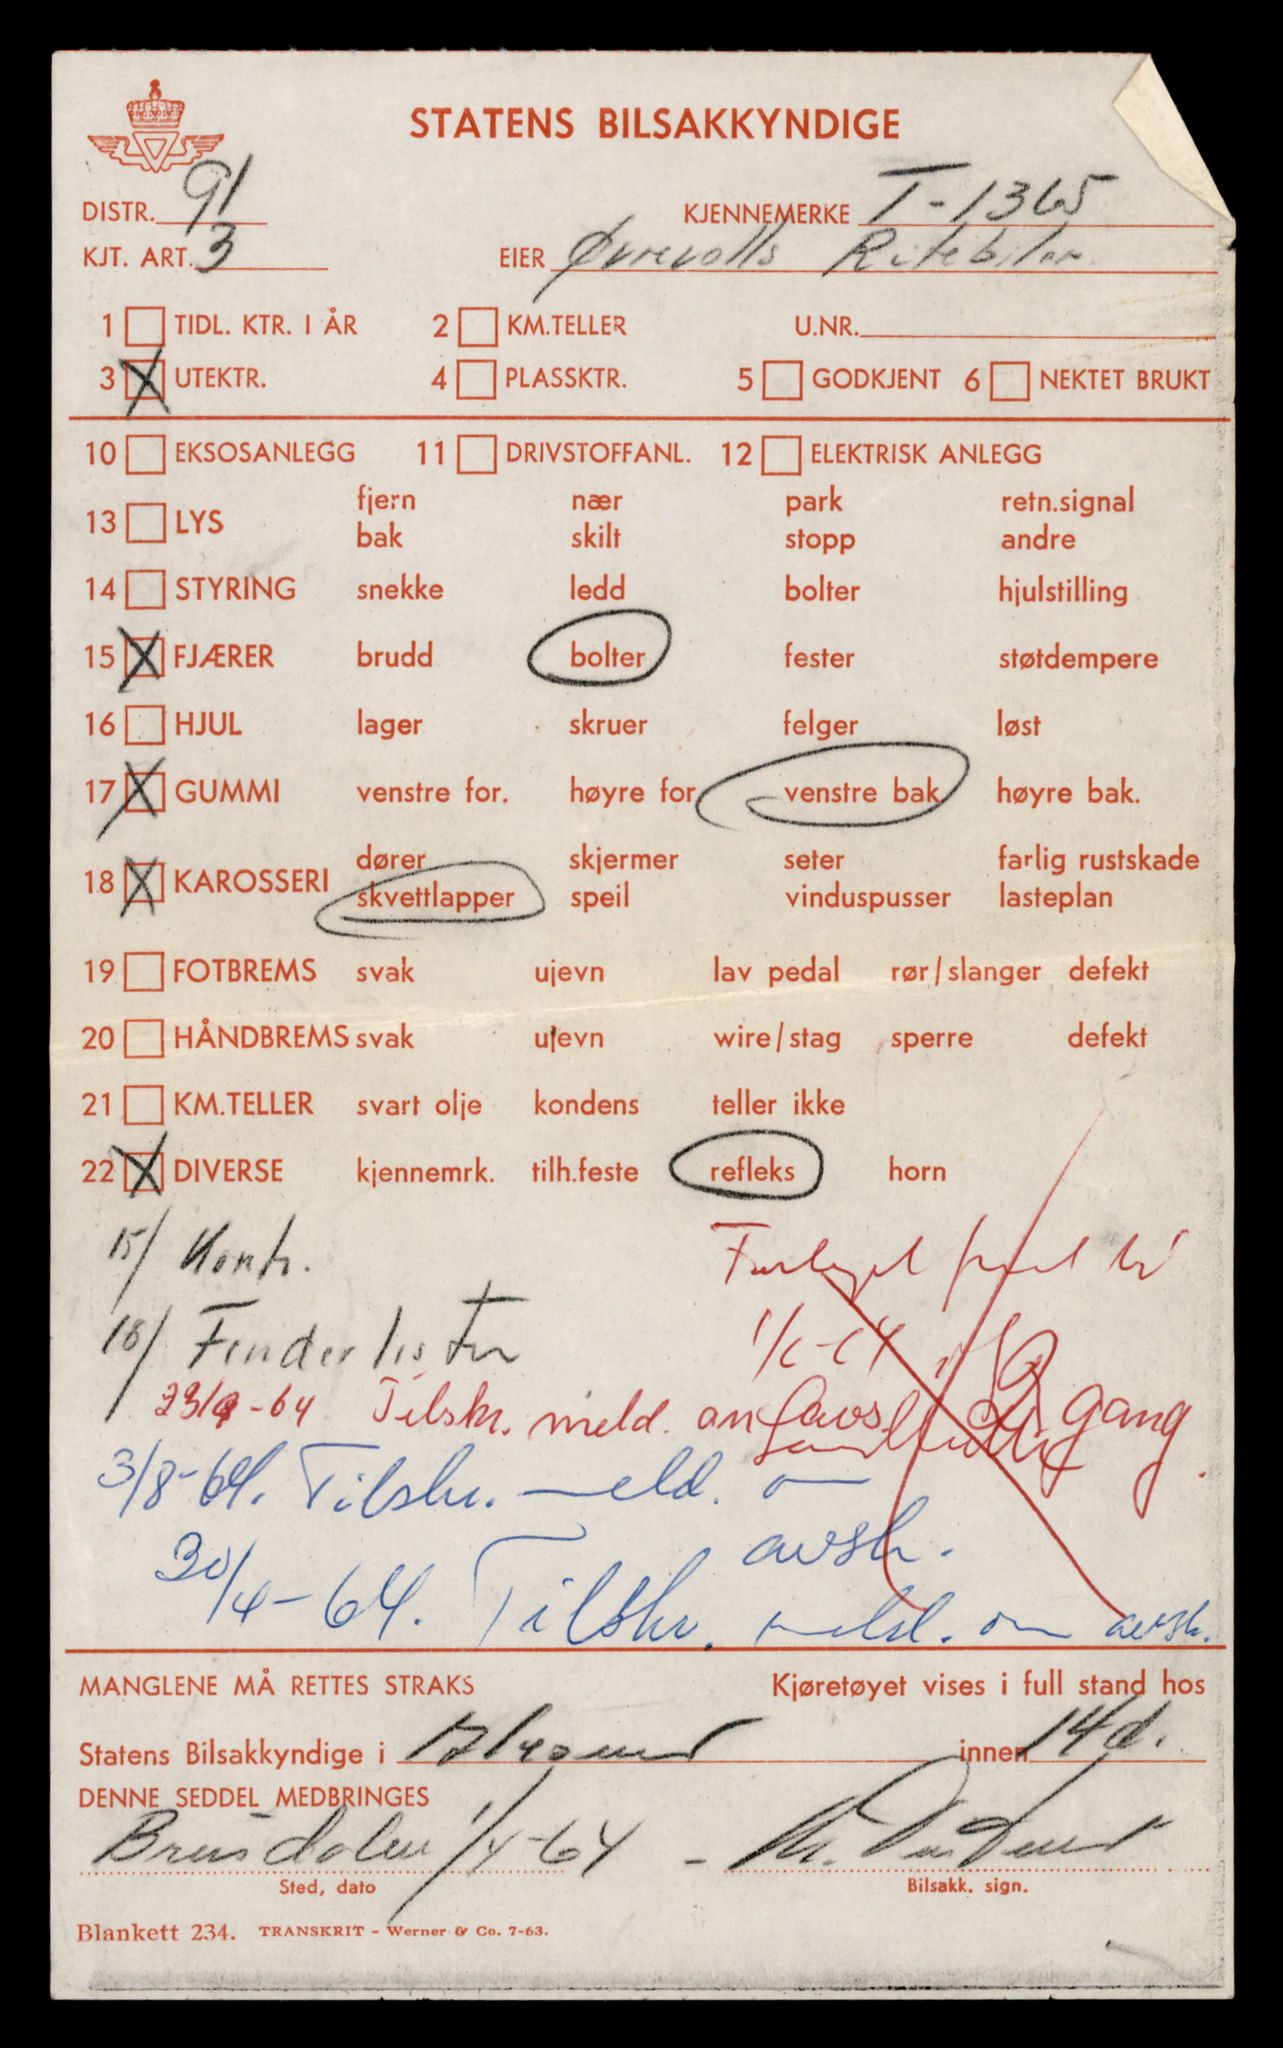 STATENS BILSAKKYNDIGE
DISTR. 91 KJENNEMERKE T-1365
KJT. ART. 3 EIER Øvrevolls Rutebiler
1 TIDL. KTR. I ÅR 2 KM.TELLER U.NR.
3 X UTEKTR. 4 PLASSKTR. 5 GODKJENT 6 NEKTET BRUKT
10 EKSOSANLEGG 11 DRIVSTOFFANL. 12 ELEKTRISK ANLEGG
fjern nær park retn.signal
13 LYS
bak skilt stopp andre
14 STYRING snekke ledd bolter hjulstilling
15 X FJÆRER brudd bolter fester støtdempere
16 HJUL lager skruer felger løst
17 X GUMMI venstre for. høyre for venstre bak høyre bak.
dører skjermer seter farlig rustskade
18 X KAROSSERI
skvettlapper speil vinduspusser lasteplan
19 FOTBREMS svak ujevn lav pedal rør/slanger defekt
20 HÅNDBREMS svak ujevn wire/stag sperre defekt
21 KM.TELLER svart olje kondens teller ikke
22 X DIVERSE kjennemrk. tilh.feste refleks horn
15/ Kontr.
18/ Fenderlister
Tilskr. meld. om avs. 2 gang
3/8-64. Tilskr. meld. om
avsk.
30/4-64. Tilskr. meld. om avsk.
MANGLENE MÅ RETTES STRAKS Kjøretøyet vises i full stand hos
Statens Bilsakkyndige i innen 14 d.
DENNE SEDDEL MEDBRINGES
Brusdalen 1/4-64
Sted, dato Bilsakk. sign.
Blankett 234. TRANSKRIT - Werner & Co. 7-63.